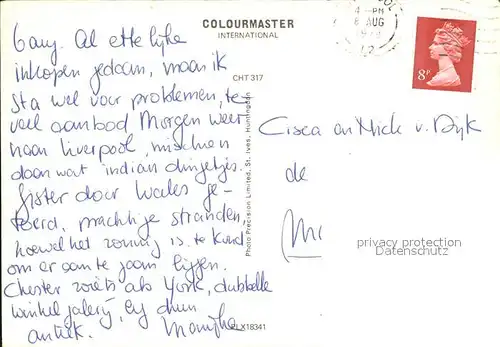 COLOURMASTER
INTERNATIONAL
CHT 317
4 - PM
8 AUG
8P
6 aug. Al ettelijke
inkopen gedaan, maar ik
sta wel voor problemen, te-
veel aanbod Morgen weer
naar Liverpool, misschien
daar wat indian dingetjes.
Gister door Wales ge-
toerd, prachtige stranden,
hoewel het zonnig is. te koud
om er aan te gaan liggen.
Chester zoiets als York, dubbele
winkel galerij, erg
antiek.
Photo Precision Limited, St. Ives, Huntingdon
PLX18341
Cisca en Nick v. Dyk
de
privacy protection
Datenschutz